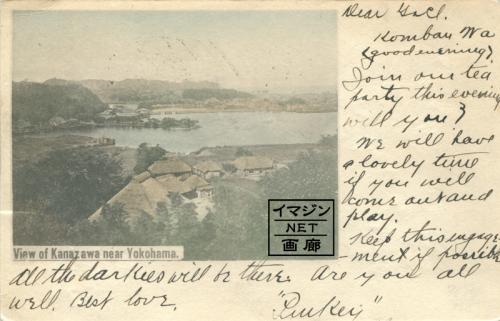 Dear G&Cl.
Komban Wa
(good evening)
Join our tea
party this evening
will you?
We will have
a lovely time
if you will
come out and
play.
Keep this engage-
ment if possible
all the darkies will be there. Are you all
well. Best love.
イマジン
NET
画廊
View of Kanazawa near Yokohama.